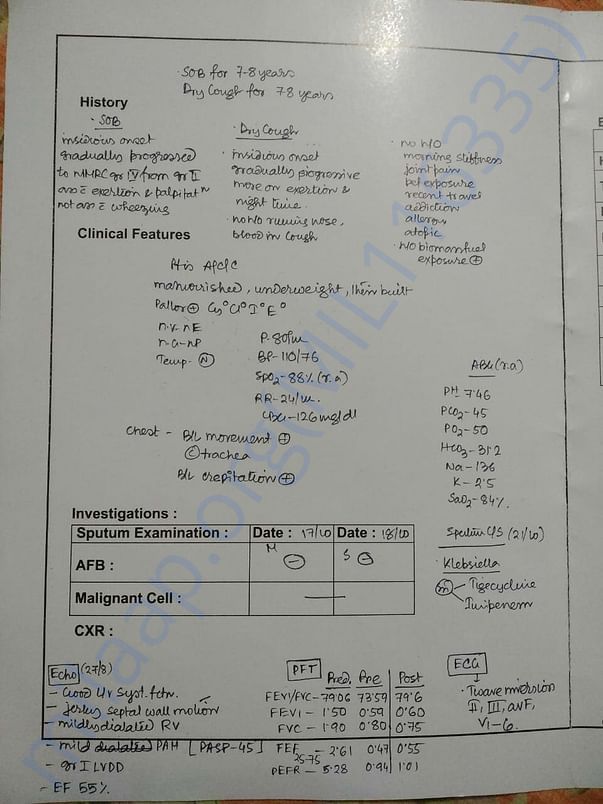 · SOB for 7-8 years
Dry Cough for 7-8 years
History
· SOB
insidious onset
gradually progressed
to MMRC gr IV from gr I
ass c̄ exertion & palpitatⁿ
not ass c̄ wheezing
· Dry Cough
· insidious onset
gradually progressive
more on exertion &
night time.
· no h/o running nose,
blood in cough
· no h/o
morning stiffness
joint pain
pet exposure
recent travel
addiction
allergy
atopic
· H/O biomassfuel
exposure ⊕
Clinical Features
Pt is A/C/C
malnourished, underweight, thin built
Pallor ⊕ Cy° Cl° I° E°
n.v. nE
n-G-nP
Temp- Ⓝ
P-80/m
BP-110/76
SpO2-88% (r.a)
RR-24/m.
CBG-126 mg/dl
Chest - B/L movement ⊕
Ⓒ trachea
B/L crepitation ⊕
ABG (r.a)
PH 7.46
PCO2-45
PO2-50
HCO3-31.2
Na-136
K-2.5
SaO2-84%.
Investigations :
Sputum Examination : Date : 17/10 Date : 18/10
AFB : M ⊖ S ⊖
Malignant Cell : —
CXR :
Sputum C/S (21/10)
· Klebsiella
Tigecycline
Imipenem
Echo (27/8)
- Good LV Syst. fctn.
- jerky septal wall motion
- mildly dialated RV
- mild PAH [PASP-45]
- gr I LVDD
- EF 55%
PFT Pred. Pre Post
FEV1/FVC - 79.06 73.59 79.6
FEV1 - 1.50 0.59 0.60
FVC - 1.90 0.80 0.75
FEF 25-75 - 2.61 0.47 0.55
PEFR - 5.28 0.94 1.01
ECG
· T wave inversion
II, III, aVF,
V1-6.